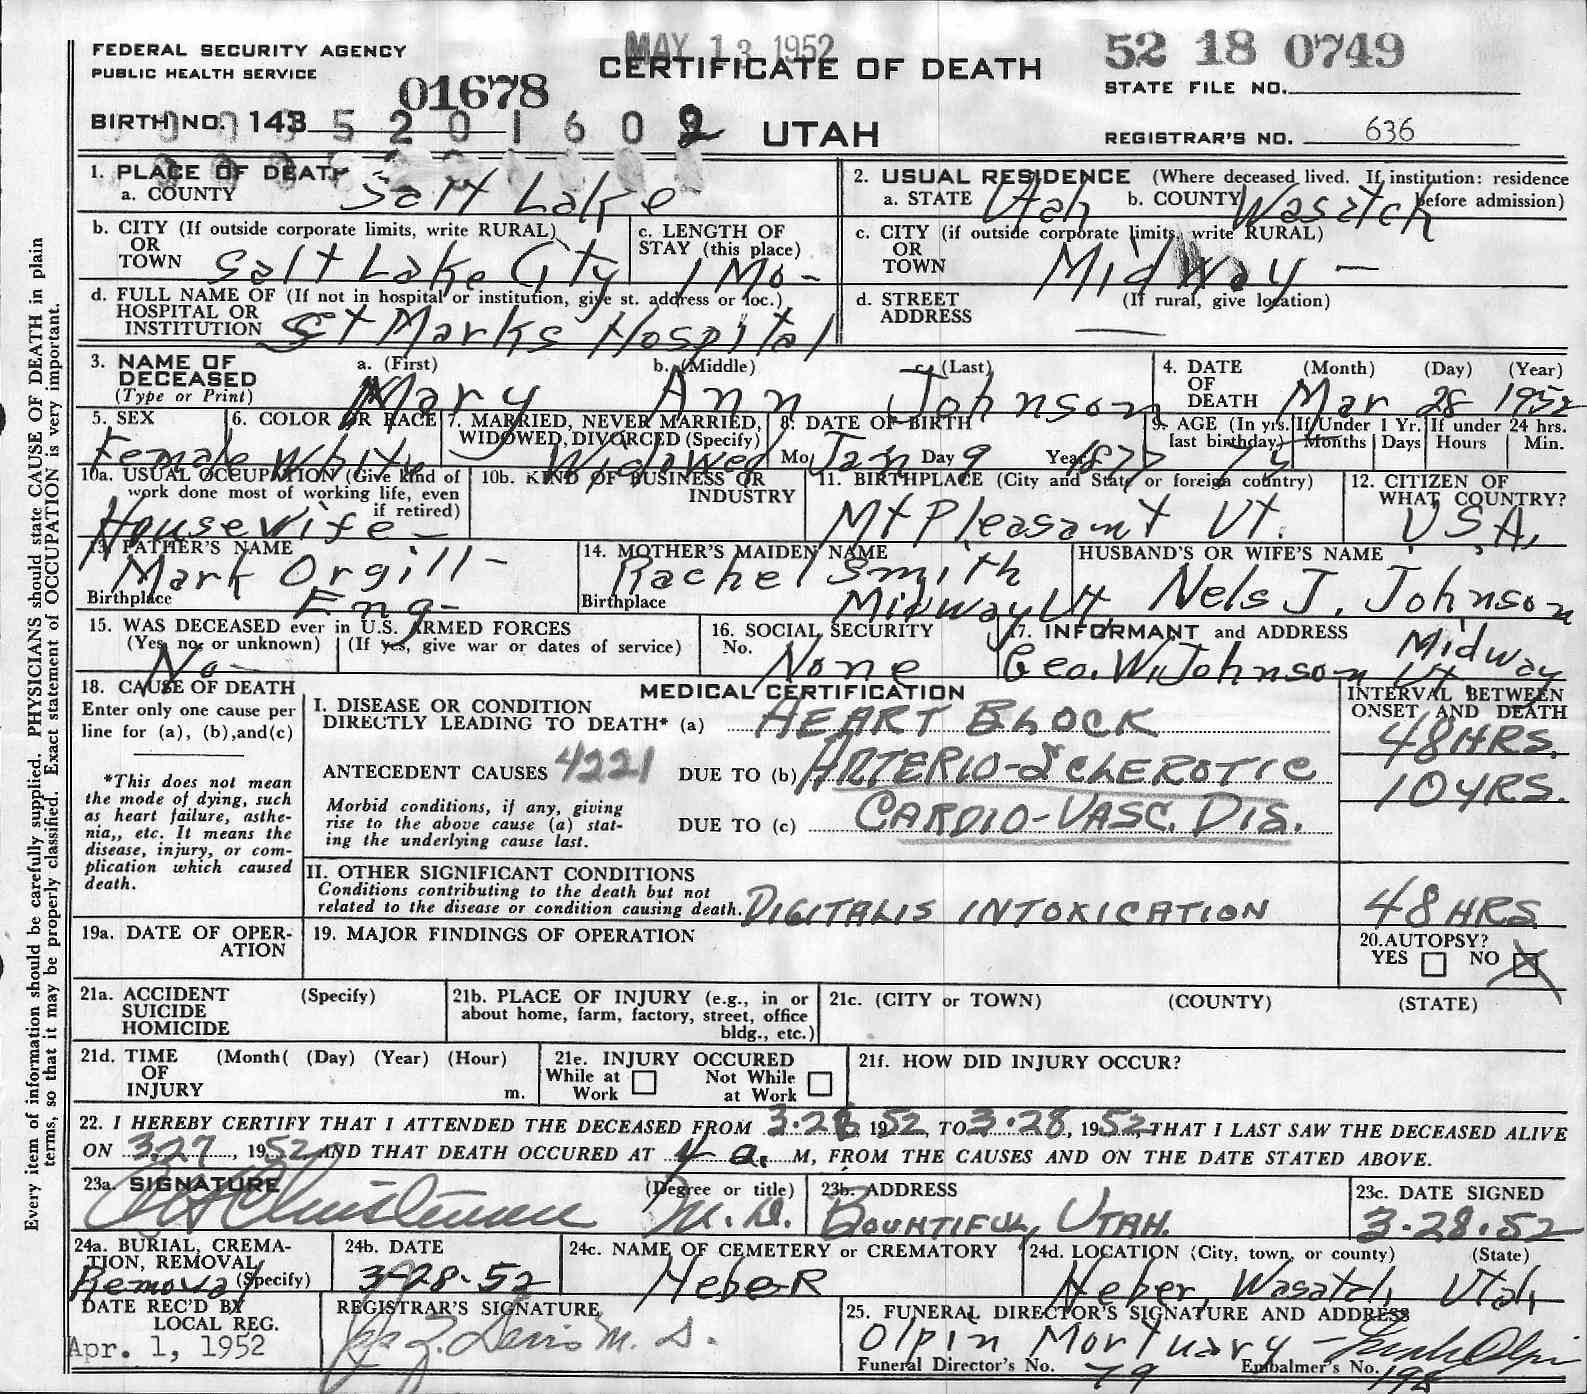 MAY 13 1952
FEDERAL SECURITY AGENCY
PUBLIC HEALTH SERVICE
CERTIFICATE OF DEATH
52 18 0749
STATE FILE NO.
01678
BIRTH NO. 143 5 2 0 1 6 0 2
UTAH
REGISTRAR'S NO. 636
1. PLACE OF DEATH
a. COUNTY Salt Lake
2. USUAL RESIDENCE (Where deceased lived. If institution: residence before admission)
a. STATE Utah b. COUNTY Wasatch
b. CITY (If outside corporate limits, write RURAL)
OR
TOWN Salt Lake City
c. LENGTH OF
STAY (this place)
1 Mo-
c. CITY (if outside corporate limits, write RURAL)
OR
TOWN Midway -
d. FULL NAME OF (If not in hospital or institution, give st. address or loc.)
HOSPITAL OR
INSTITUTION St Marks Hospital
d. STREET (If rural, give location)
ADDRESS
3. NAME OF
DECEASED
(Type or Print)
a. (First) b. (Middle) c. (Last)
Mary Ann Johnson
4. DATE
OF
DEATH
(Month) (Day) (Year)
Mar 28 1952
5. SEX
Female
6. COLOR OR RACE
White
7. MARRIED, NEVER MARRIED,
WIDOWED, DIVORCED (Specify)
Widowed
8. DATE OF BIRTH
Mo. Jan Day 9 Year 1877
9. AGE (In yrs.
last birthday)
75
If Under 1 Yr.
Months Days
If under 24 hrs.
Hours Min.
10a. USUAL OCCUPATION (Give kind of
work done most of working life, even
if retired)
Housewife -
10b. KIND OF BUSINESS OR
INDUSTRY
11. BIRTHPLACE (City and State or foreign country)
Mt Pleasant Ut.
12. CITIZEN OF
WHAT COUNTRY?
USA,
13. FATHER'S NAME
Mark Orgill -
Birthplace Eng-
14. MOTHER'S MAIDEN NAME
Rachel Smith
Birthplace Midway Ut
HUSBAND'S OR WIFE'S NAME
Nels J. Johnson
15. WAS DECEASED ever in U.S. ARMED FORCES
(Yes, no, or unknown) (If yes, give war or dates of service)
No-
16. SOCIAL SECURITY
No. None
17. INFORMANT and ADDRESS
Geo. W. Johnson Midway Ut.
18. CAUSE OF DEATH
Enter only one cause per
line for (a), (b), and(c)
*This does not mean
the mode of dying, such
as heart failure, asthe-
nia,, etc. It means the
disease, injury, or com-
plication which caused
death.
MEDICAL CERTIFICATION
I. DISEASE OR CONDITION
DIRECTLY LEADING TO DEATH* (a) HEART BLOCK
INTERVAL BETWEEN
ONSET AND DEATH
48 HRS.
ANTECEDENT CAUSES 4221 DUE TO (b) ARTERIO-SCLEROTIC
10 YRS.
Morbid conditions, if any, giving
rise to the above cause (a) stat-
ing the underlying cause last.
DUE TO (c) CARDIO-VASC. DIS.
II. OTHER SIGNIFICANT CONDITIONS
Conditions contributing to the death but not
related to the disease or condition causing death. DIGITALIS INTOXICATION
48 HRS
19a. DATE OF OPER-
ATION
19. MAJOR FINDINGS OF OPERATION
20. AUTOPSY?
YES NO X
21a. ACCIDENT (Specify)
SUICIDE
HOMICIDE
21b. PLACE OF INJURY (e.g., in or
about home, farm, factory, street, office
bldg., etc.)
21c. (CITY or TOWN) (COUNTY) (STATE)
21d. TIME (Month( (Day) (Year) (Hour)
OF
INJURY m.
21e. INJURY OCCURED
While at Work Not While at Work
21f. HOW DID INJURY OCCUR?
22. I HEREBY CERTIFY THAT I ATTENDED THE DECEASED FROM 3-28 1952, TO 3-28, 1952, THAT I LAST SAW THE DECEASED ALIVE
ON 3.27, 1952 AND THAT DEATH OCCURED AT 4 a. M, FROM THE CAUSES AND ON THE DATE STATED ABOVE.
23a. SIGNATURE (Degree or title)
Christensen M.D.
23b. ADDRESS
BOUNTIFUL, UTAH.
23c. DATE SIGNED
3-28-52
24a. BURIAL, CREMA-
TION, REMOVAL
(Specify)
Removal
24b. DATE
3-28-52
24c. NAME OF CEMETERY or CREMATORY
Heber
24d. LOCATION (City, town, or county) (State)
Heber, Wasatch, Utah
DATE REC'D BY
LOCAL REG.
Apr. 1, 1952
REGISTRAR'S SIGNATURE
Davis M. D.
25. FUNERAL DIRECTOR'S SIGNATURE AND ADDRESS
Olpin Mortuary - Olpin
Funeral Director's No. 79 Embalmer's No. 198
Every item of information should be carefully supplied. PHYSICIANS should state CAUSE OF DEATH in plain
terms, so that it may be properly classified. Exact statement of OCCUPATION is very important.